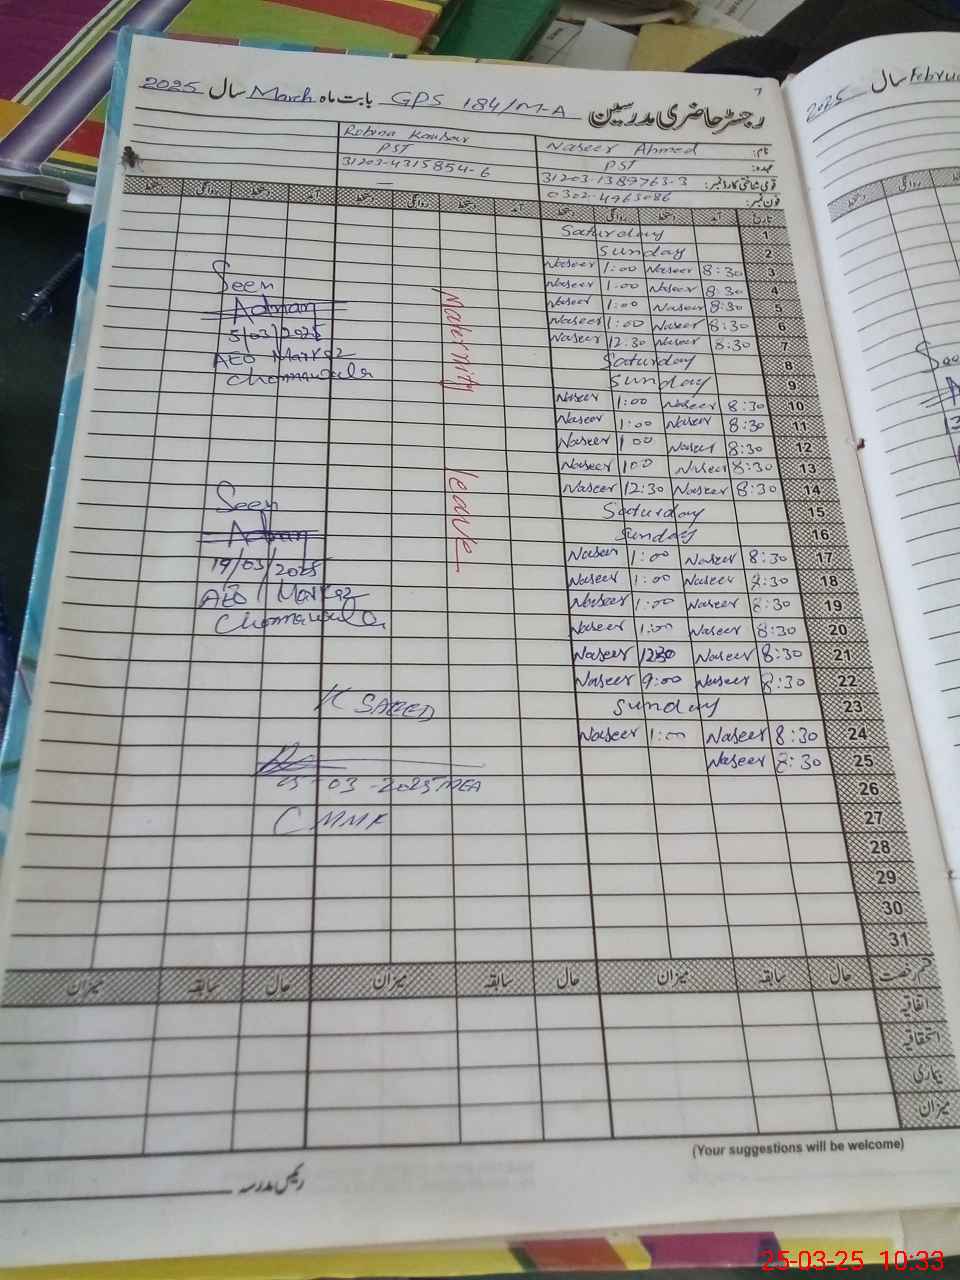 رجسٹر حاضری مدرسین GPS 184/M-A بابت ماہ March سال 2025
7
نام: Naseer Ahmed
عہدہ: PST
قومی شناختی کارڈ نمبر: 31203-1389763-3
فون نمبر: 0302-4963086
Robina Kousar
PST
31203-4315854-6
—
تاریخ آمد دستخط روانگی دستخط آمد دستخط روانگی دستخط آمد دستخط روانگی دستخط
1 Saturday
2 Sunday
3 8:30 Naseer 1:00 Naseer
4 8:30 Naseer 1:00 Naseer
5 8:30 Naseer 1:00 Naseer
6 8:30 Naseer 1:00 Naseer
7 8:30 Naseer 12:30 Naseer
8 Saturday
9 Sunday
10 8:30 Naseer 1:00 Naseer
11 8:30 Naseer 1:00 Naseer
12 8:30 Naseer 1 00 Naseer
13 8:30 Naseer 100 Naseer
14 8:30 Naseer 12:30 Naseer
15 Saturday
16 Sunday
17 8:30 Naseer 1:00 Naseer
18 8:30 Naseer 1:00 Naseer
19 8:30 Naseer 1:00 Naseer
20 8:30 Naseer 1:00 Naseer
21 8:30 Naseer 1230 Naseer
22 8:30 Naseer 9:00 Naseer
23 Sunday
24 8:30 Naseer 1:00 Naseer
25 8:30 Naseer
26
27
28
29
30
31
Maternity leave
Seen
Adnan
5/03/2025
AEO Markaz
Chonawala
Seen
Adnan
19/03/2025
AEO Markaz
Chonawala
K SAEED
25-03-2025 MEA
CMMF
قسم رخصت حال سابقہ میزان حال سابقہ میزان حال سابقہ میزان
اتفاقیہ
استحقاقیہ
بیماری
میزان
(Your suggestions will be welcome)
رئیس مدرسہ
2025 سال
See
25-03-25 10:33